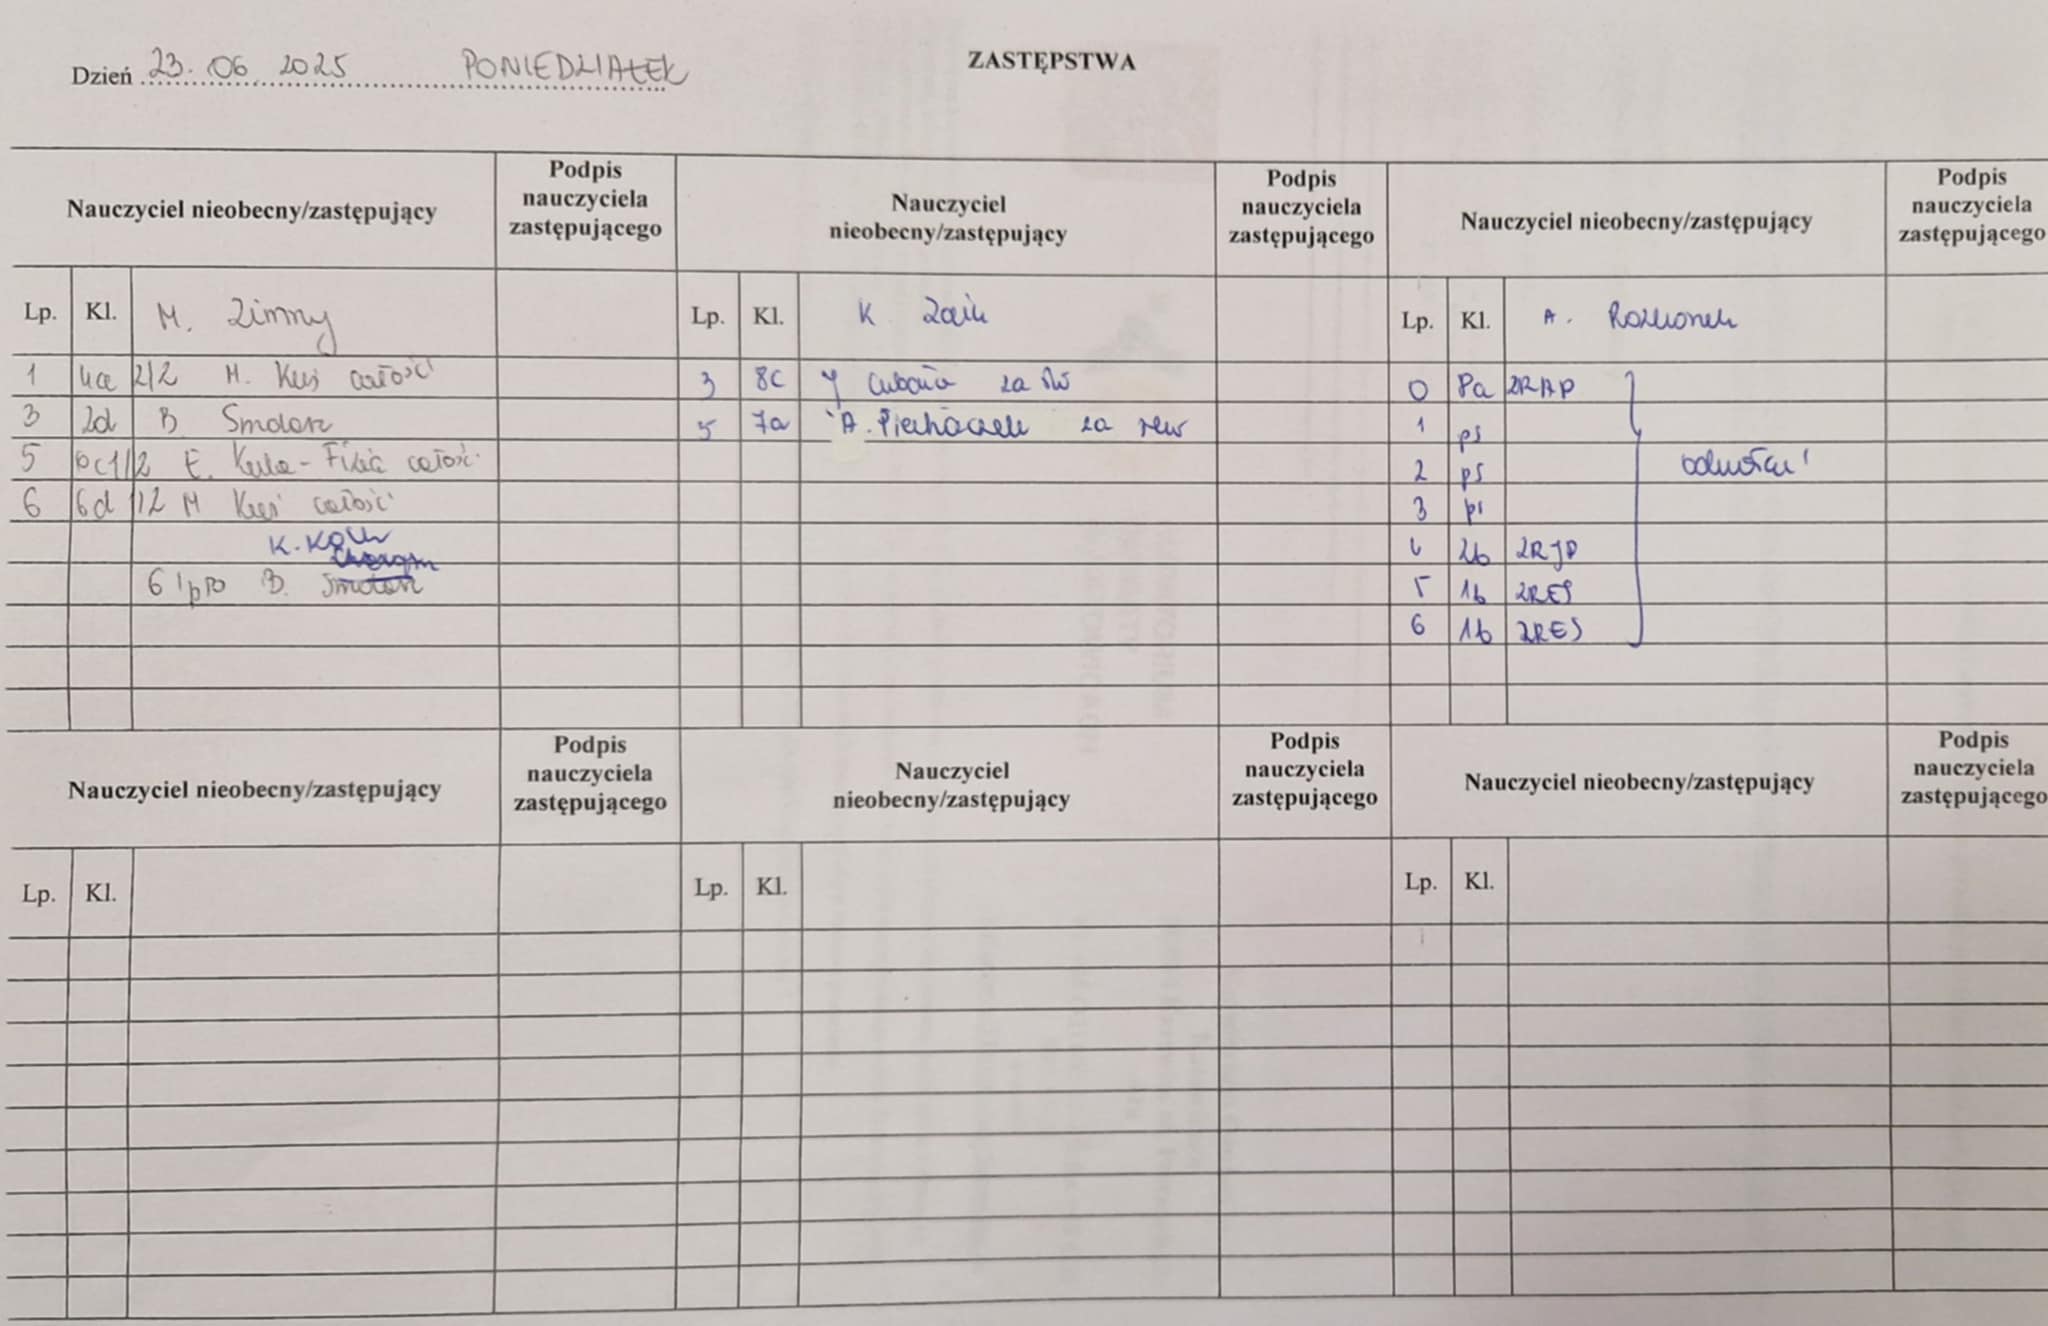 ZASTĘPSTWA
Dzień 23. 06. 2025 PONIEDZIAŁEK
Nauczyciel nieobecny/zastępujący
Podpis nauczyciela zastępującego
Nauczyciel nieobecny/zastępujący
Podpis nauczyciela zastępującego
Nauczyciel nieobecny/zastępujący
Podpis nauczyciela zastępującego
Lp. Kl. M. Zimny
1 4a 2/2 M. Kuś całość
3 2d B. Smolorz
5 6c 1/2 E. Kula - całość
6 6d 1/2 M Kuś całość
K. Koch
6 B. Smolorz
Lp. Kl. K Zaik
3 8c za
5 7a A. Piechaczek za rew
Lp. Kl. A.
0 8a ZRAP
1 ps
2 ps odwołać
3 ps
4 2b ZRJP
5 1b ZRES
6 1b ZRES
Nauczyciel nieobecny/zastępujący
Podpis nauczyciela zastępującego
Nauczyciel nieobecny/zastępujący
Podpis nauczyciela zastępującego
Nauczyciel nieobecny/zastępujący
Podpis nauczyciela zastępującego
Lp. Kl.
Lp. Kl.
Lp. Kl.